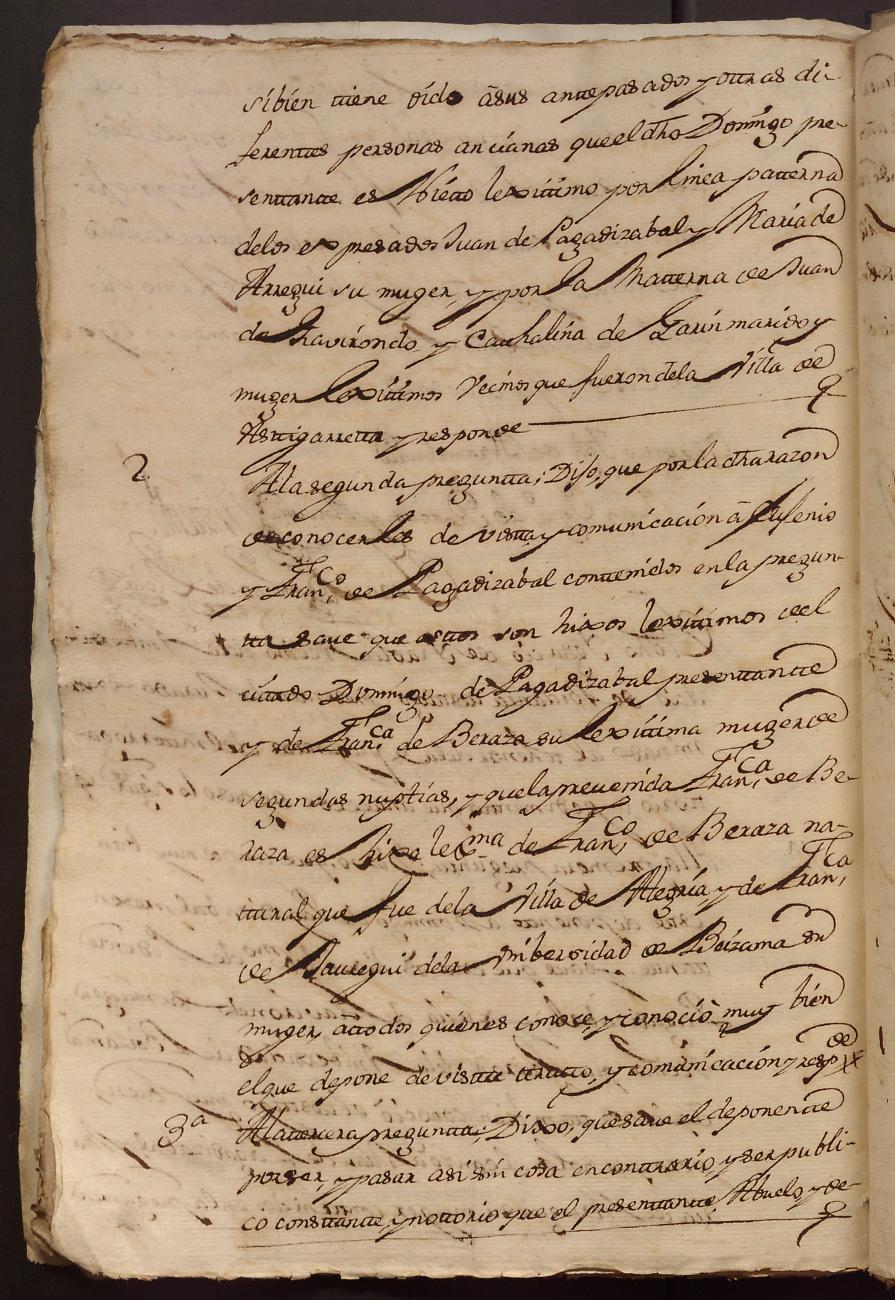 si bien ttiene oido â sus anttepasados y ottras di-
ferenttes personas ancianas que el dho Domingo pre-
senttante es Nietto lexittimo por linea patterna
de los expresados Juan de Pagadizabal y Maria de
Arregui su muger, y por la Matterna de Juan
de Gavirondo y Cathalina de Garin marido y
muger lexittimos Vecinos que fueron de la Villa de
Asttigarretta y responde
2. A la segunda pregunta; Dijo, que por la dha razon
de conocerles de vistta y comunicacion â Eusenio
y Franco, de Pagadizabal contenidos en la pregun-
tta save que esttos son hixos lexittimos de el
cittado Domingo de Pagadizabal presenttantte
y de Franca de Beraza su lexittima muger de
segundas nuptias, y que la prevenida Franca, de Be-
raza es hixa lexma de Franco, de Beraza na-
ttural que fue de la Villa de Alegria y de Franca,
de Jauregui de la Unibersidad de Beizama su
muger, â ttodos quienes conoce y conociô muy bien
el que depone de vistta ttratto, y comunicacion y respde
3a A la ttercera pregunta; Dixo, que save el deponentte
por ser y pasar asi sin cosa en conttrario, y ser publi-
co consttante y nottorio que el presenttante, Abuelo, y de-